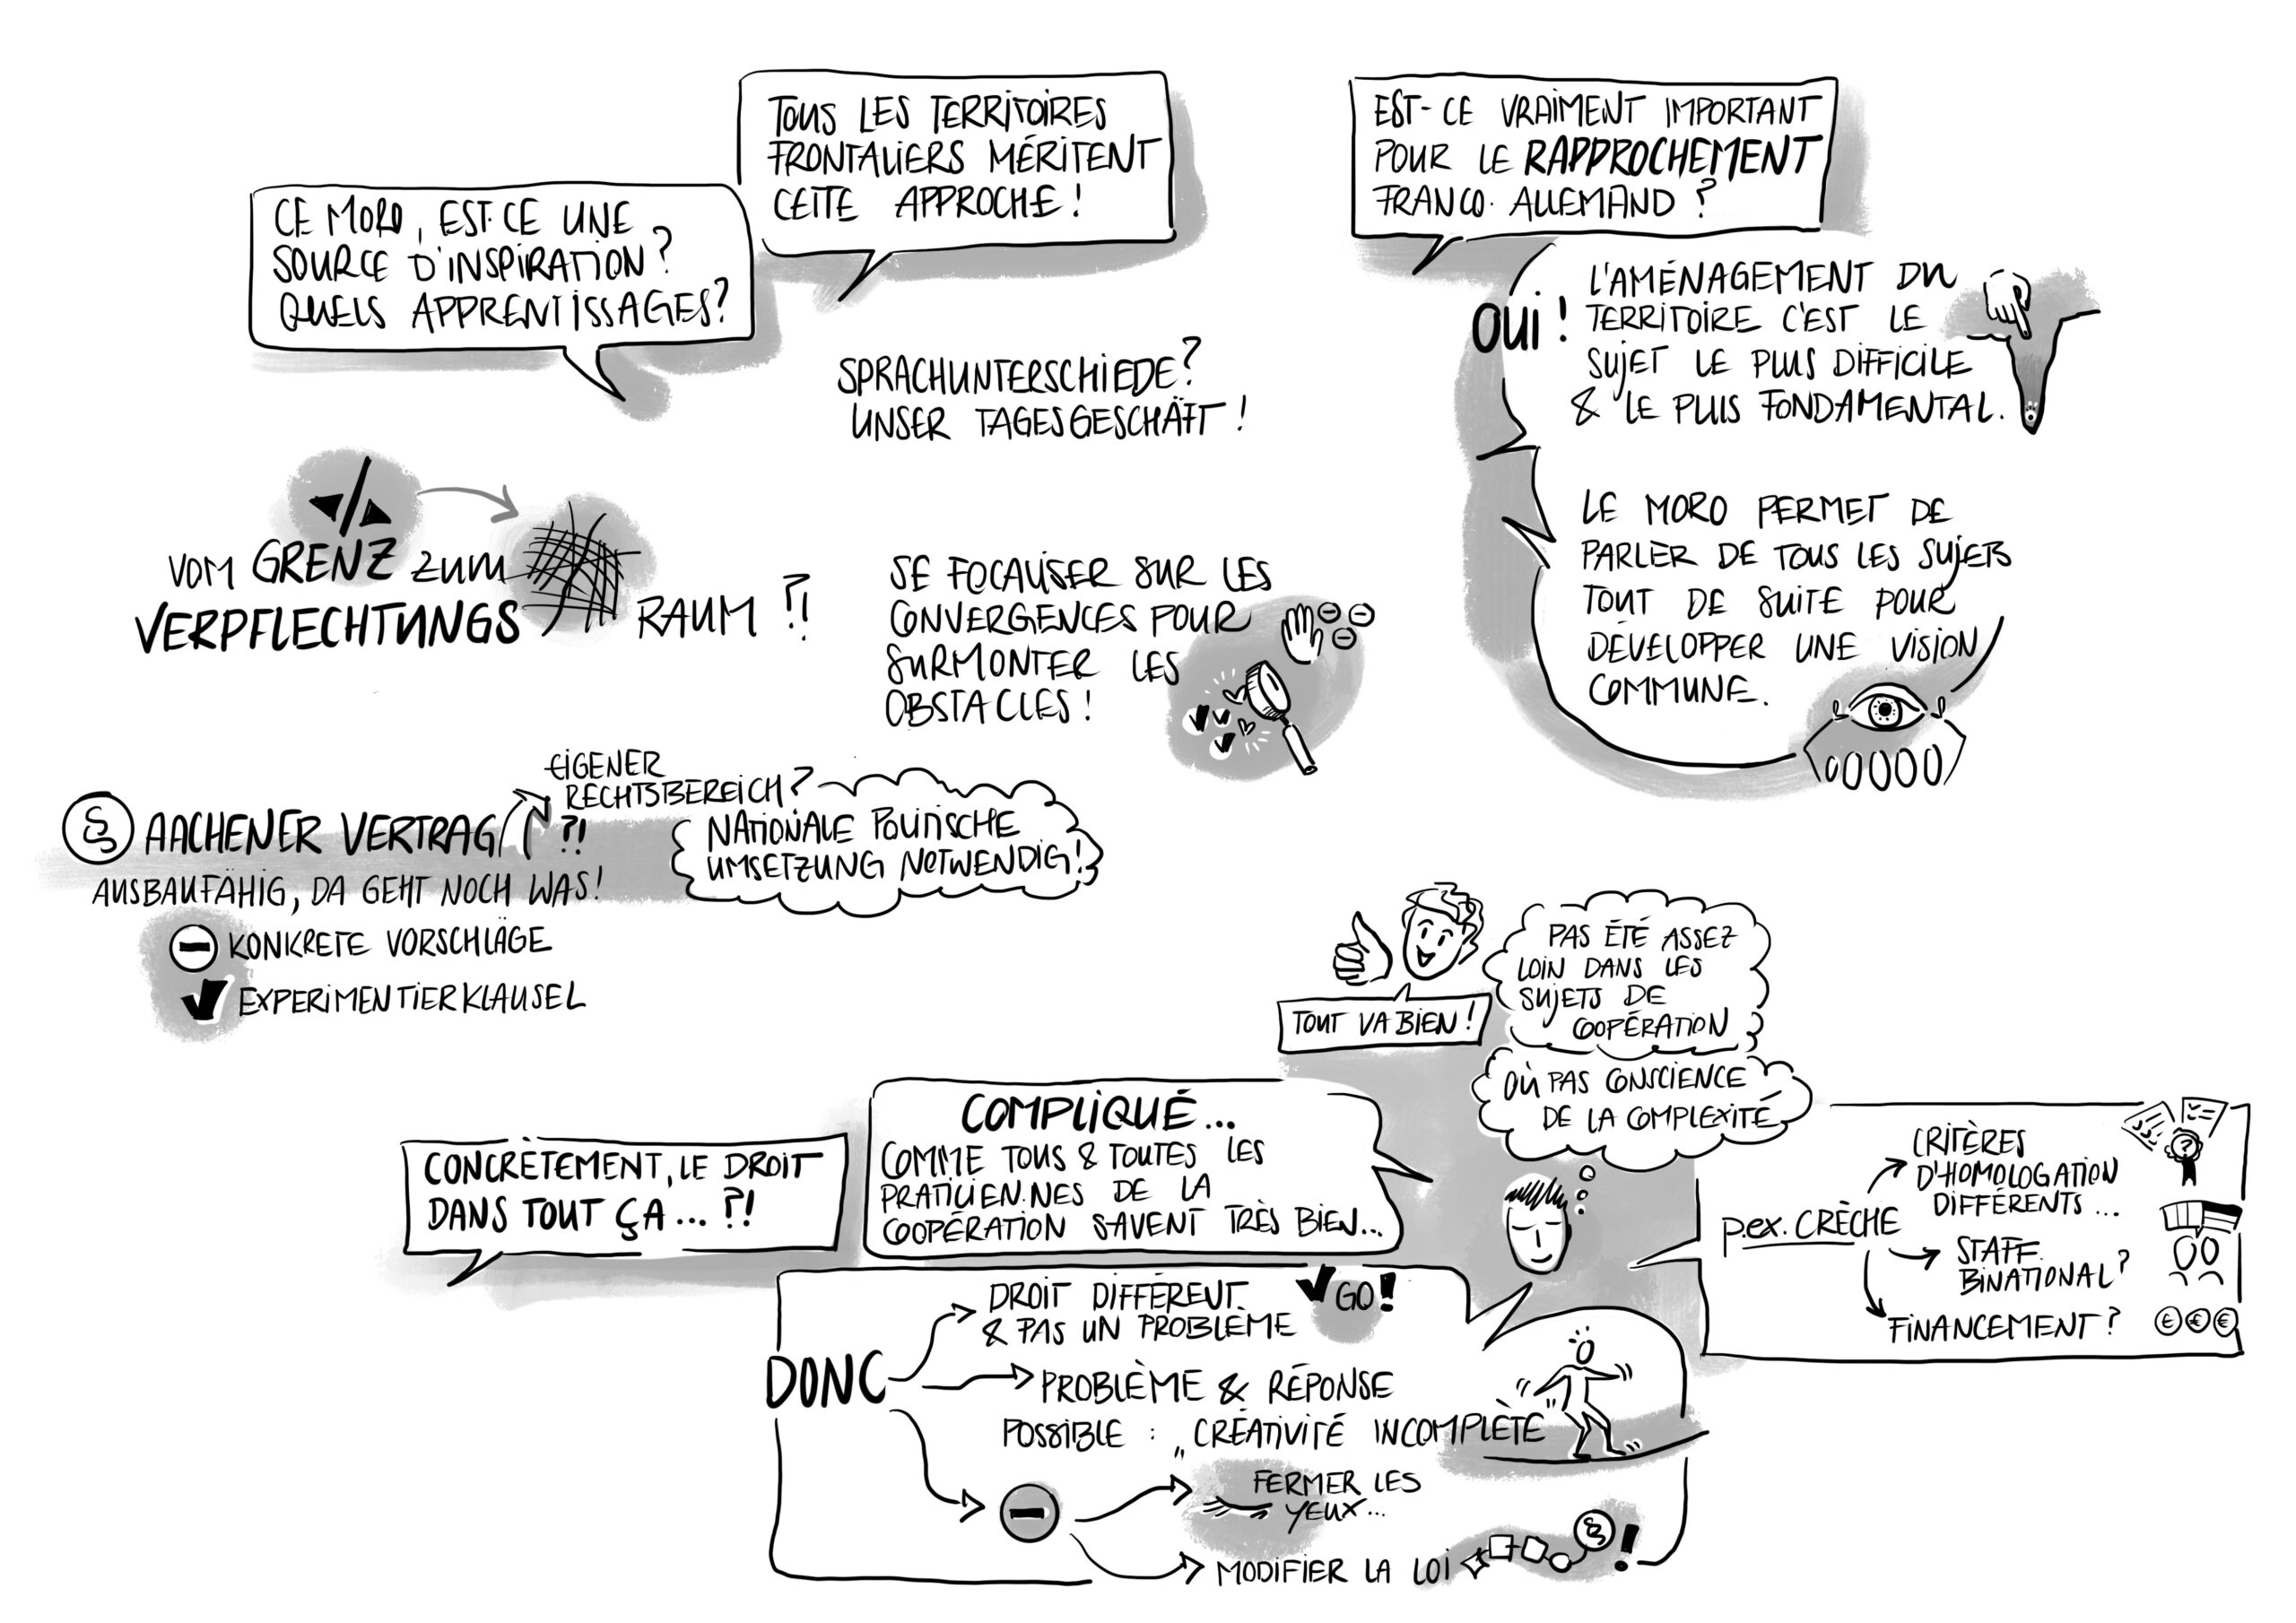 CE MORO, EST-CE UNE
SOURCE D'INSPIRATION?
QUELS APPRENTISSAGES?
TOUS LES TERRITOIRES
FRONTALIERS MÉRITENT
CETTE APPROCHE!
EST-CE VRAIMENT IMPORTANT
POUR LE RAPPROCHEMENT
FRANCO-ALLEMAND?
OUI!
L'AMÉNAGEMENT DU
TERRITOIRE C'EST LE
SUJET LE PLUS DIFFICILE
& LE PLUS FONDAMENTAL.
LE MORO PERMET DE
PARLER DE TOUS LES SUJETS
TOUT DE SUITE POUR
DÉVELOPPER UNE VISION
COMMUNE.
SPRACHUNTERSCHIEDE?
UNSER TAGESGESCHÄFT!
VOM GRENZ ZUM
VERPFLECHTUNGS RAUM?!
SE FOCALISER SUR LES
CONVERGENCES POUR
SURMONTER LES
OBSTACLES!
§ AACHENER VERTRAG ?!
AUSBAUFÄHIG, DA GEHT NOCH WAS!
KONKRETE VORSCHLÄGE
EXPERIMENTIERKLAUSEL
EIGENER
RECHTSBEREICH?
NATIONALE POLITISCHE
UMSETZUNG NOTWENDIG!
TOUT VA BIEN!
PAS ÉTÉ ASSEZ
LOIN DANS LES
SUJETS DE
COOPÉRATION
OÙ PAS CONSCIENCE
DE LA COMPLEXITÉ
CONCRÈTEMENT, LE DROIT
DANS TOUT ÇA...?!
COMPLIQUÉ...
COMME TOUS & TOUTES LES
PRATICIEN.NES DE LA
COOPÉRATION SAVENT TRÈS BIEN...
p.ex. CRÈCHE
CRITÈRES
D'HOMOLOGATION
DIFFÉRENTS...
STAFF
BINATIONAL?
FINANCEMENT?
€ € €
DONC
DROIT DIFFÉRENT
& PAS UN PROBLÈME
GO!
PROBLÈME & RÉPONSE
POSSIBLE: „CRÉATIVITÉ INCOMPLÈTE"
FERMER LES
YEUX...
MODIFIER LA LOI § !